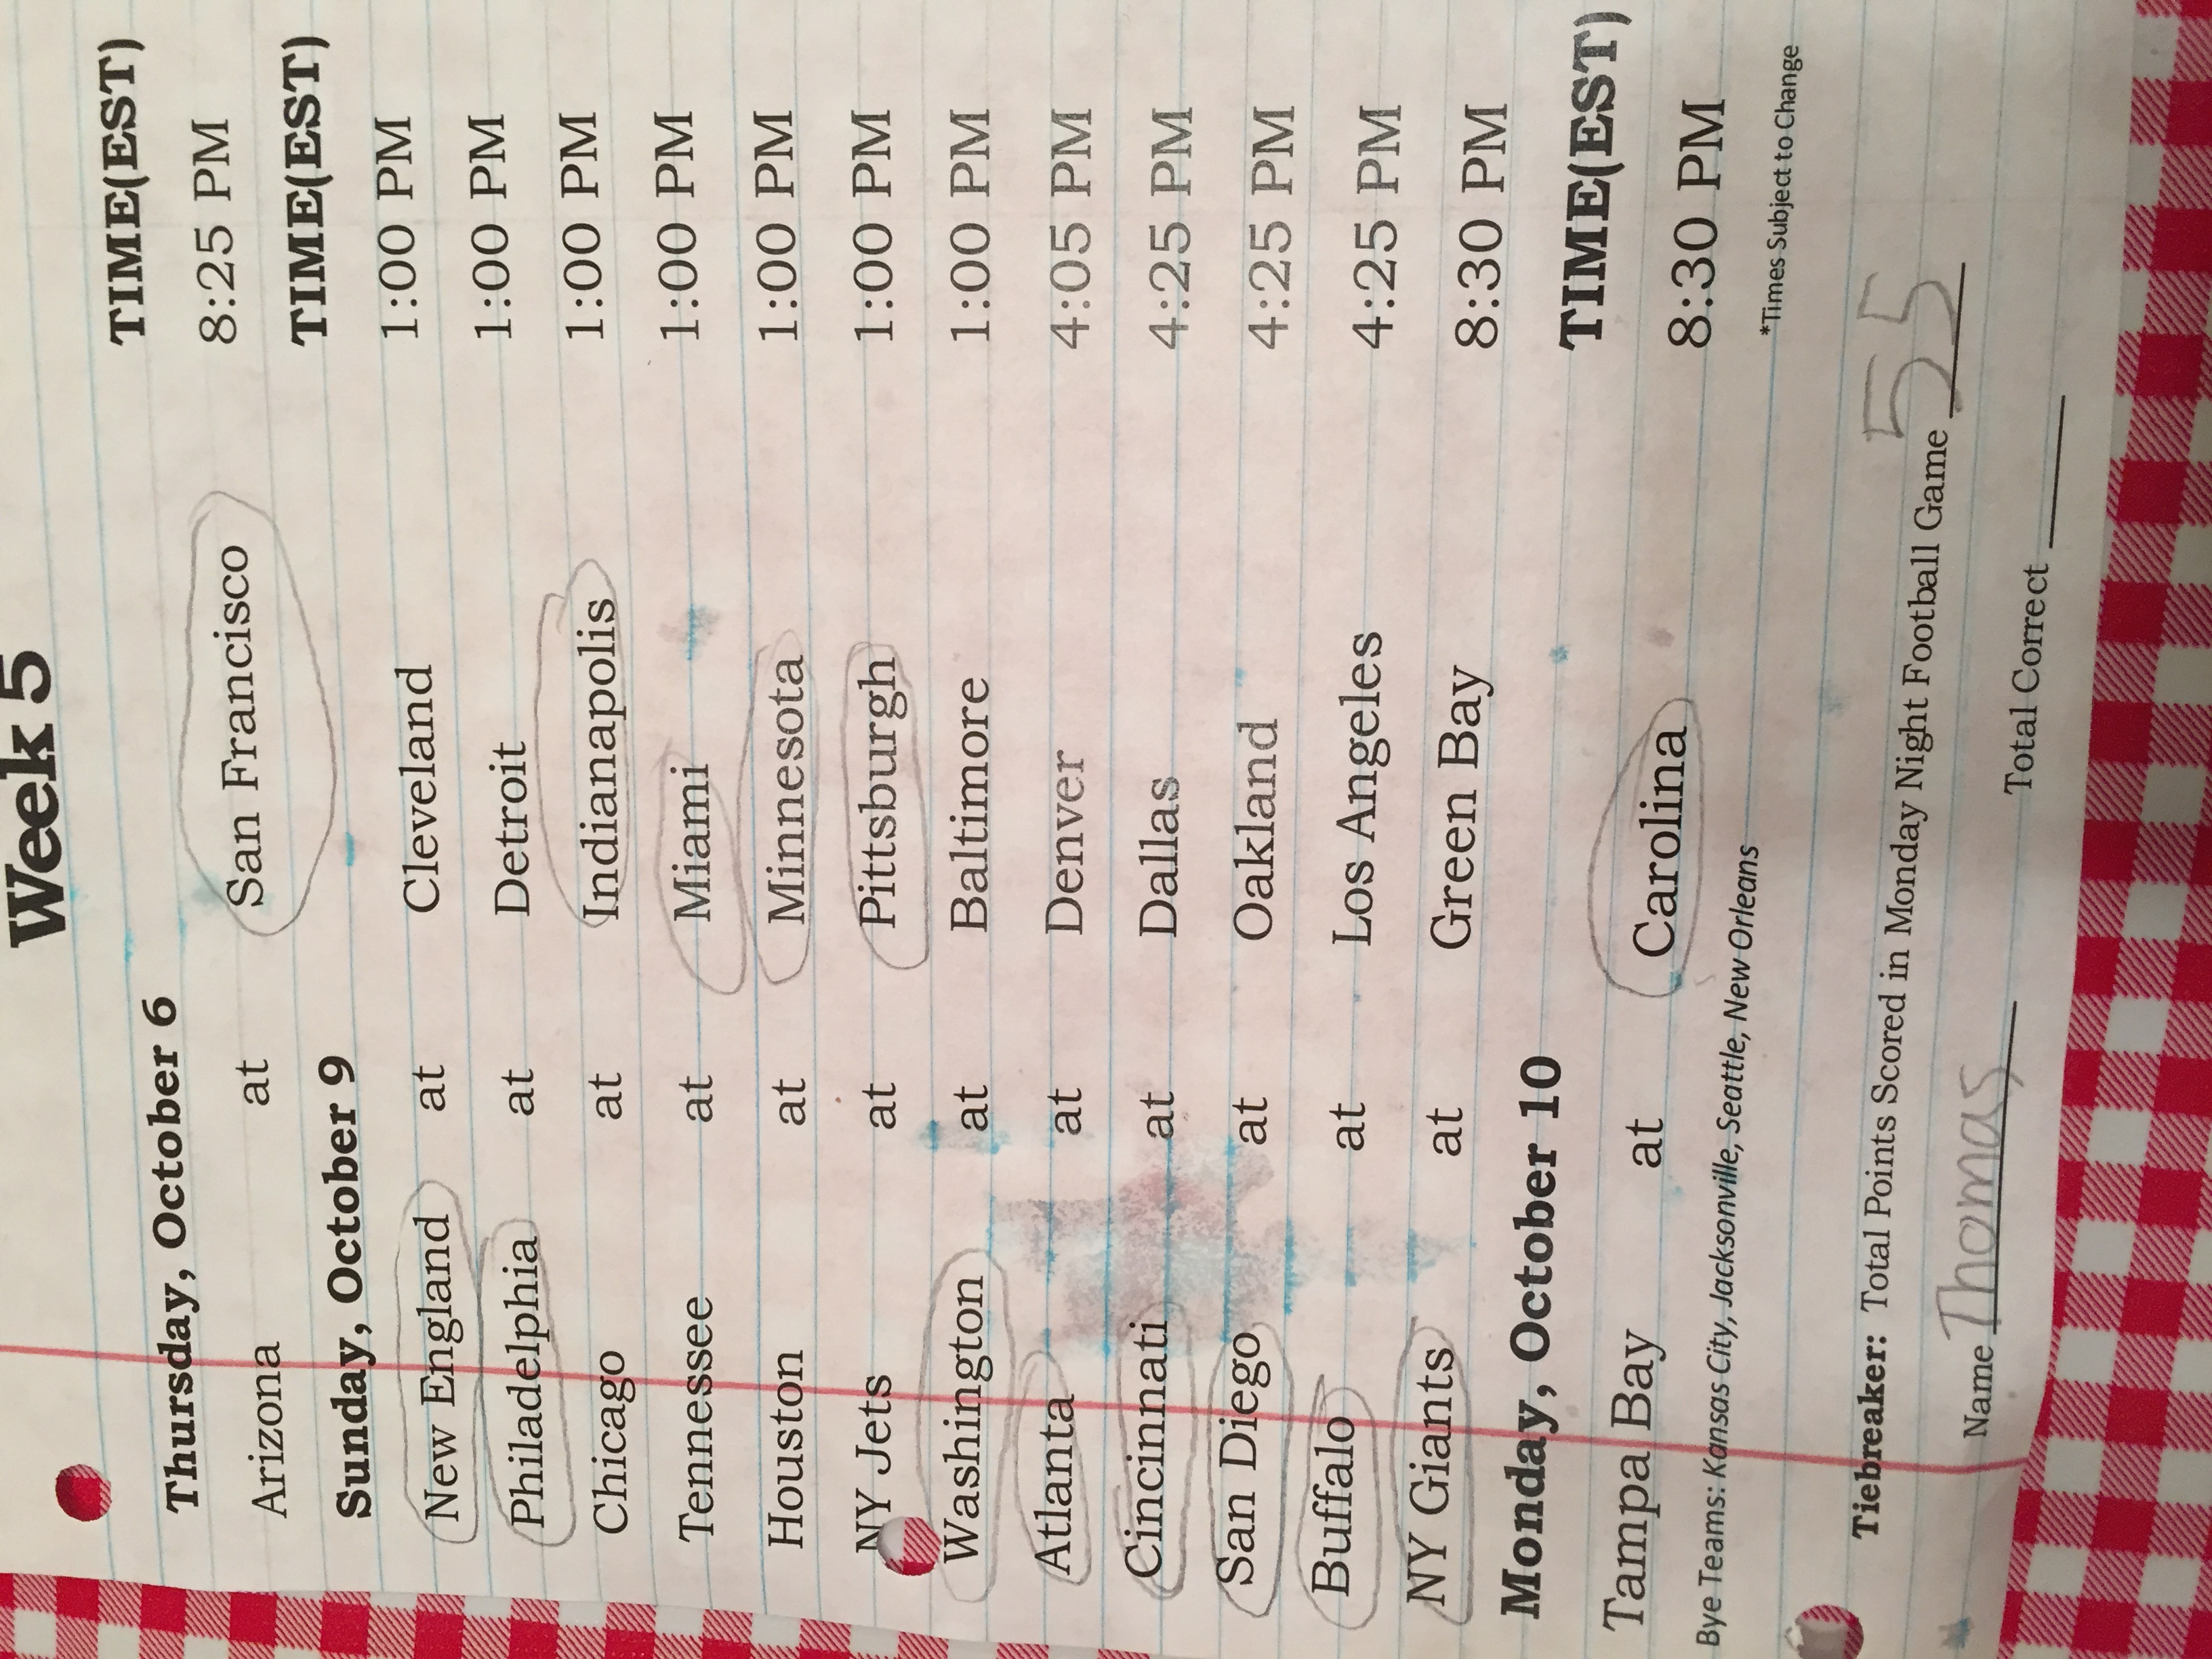 Week 5
Thursday, October 6 TIME(EST)
Arizona at San Francisco 8:25 PM
Sunday, October 9 TIME(EST)
New England at Cleveland 1:00 PM
Philadelphia at Detroit 1:00 PM
Chicago at Indianapolis 1:00 PM
Tennessee at Miami 1:00 PM
Houston at Minnesota 1:00 PM
NY Jets at Pittsburgh 1:00 PM
Washington at Baltimore 1:00 PM
Atlanta at Denver 4:05 PM
Cincinnati at Dallas 4:25 PM
San Diego at Oakland 4:25 PM
Buffalo at Los Angeles 4:25 PM
NY Giants at Green Bay 8:30 PM
Monday, October 10 TIME(EST)
Tampa Bay at Carolina 8:30 PM
Bye Teams: Kansas City, Jacksonville, Seattle, New Orleans *Times Subject to Change
Tiebreaker: Total Points Scored in Monday Night Football Game 55
Name Thomas Total Correct